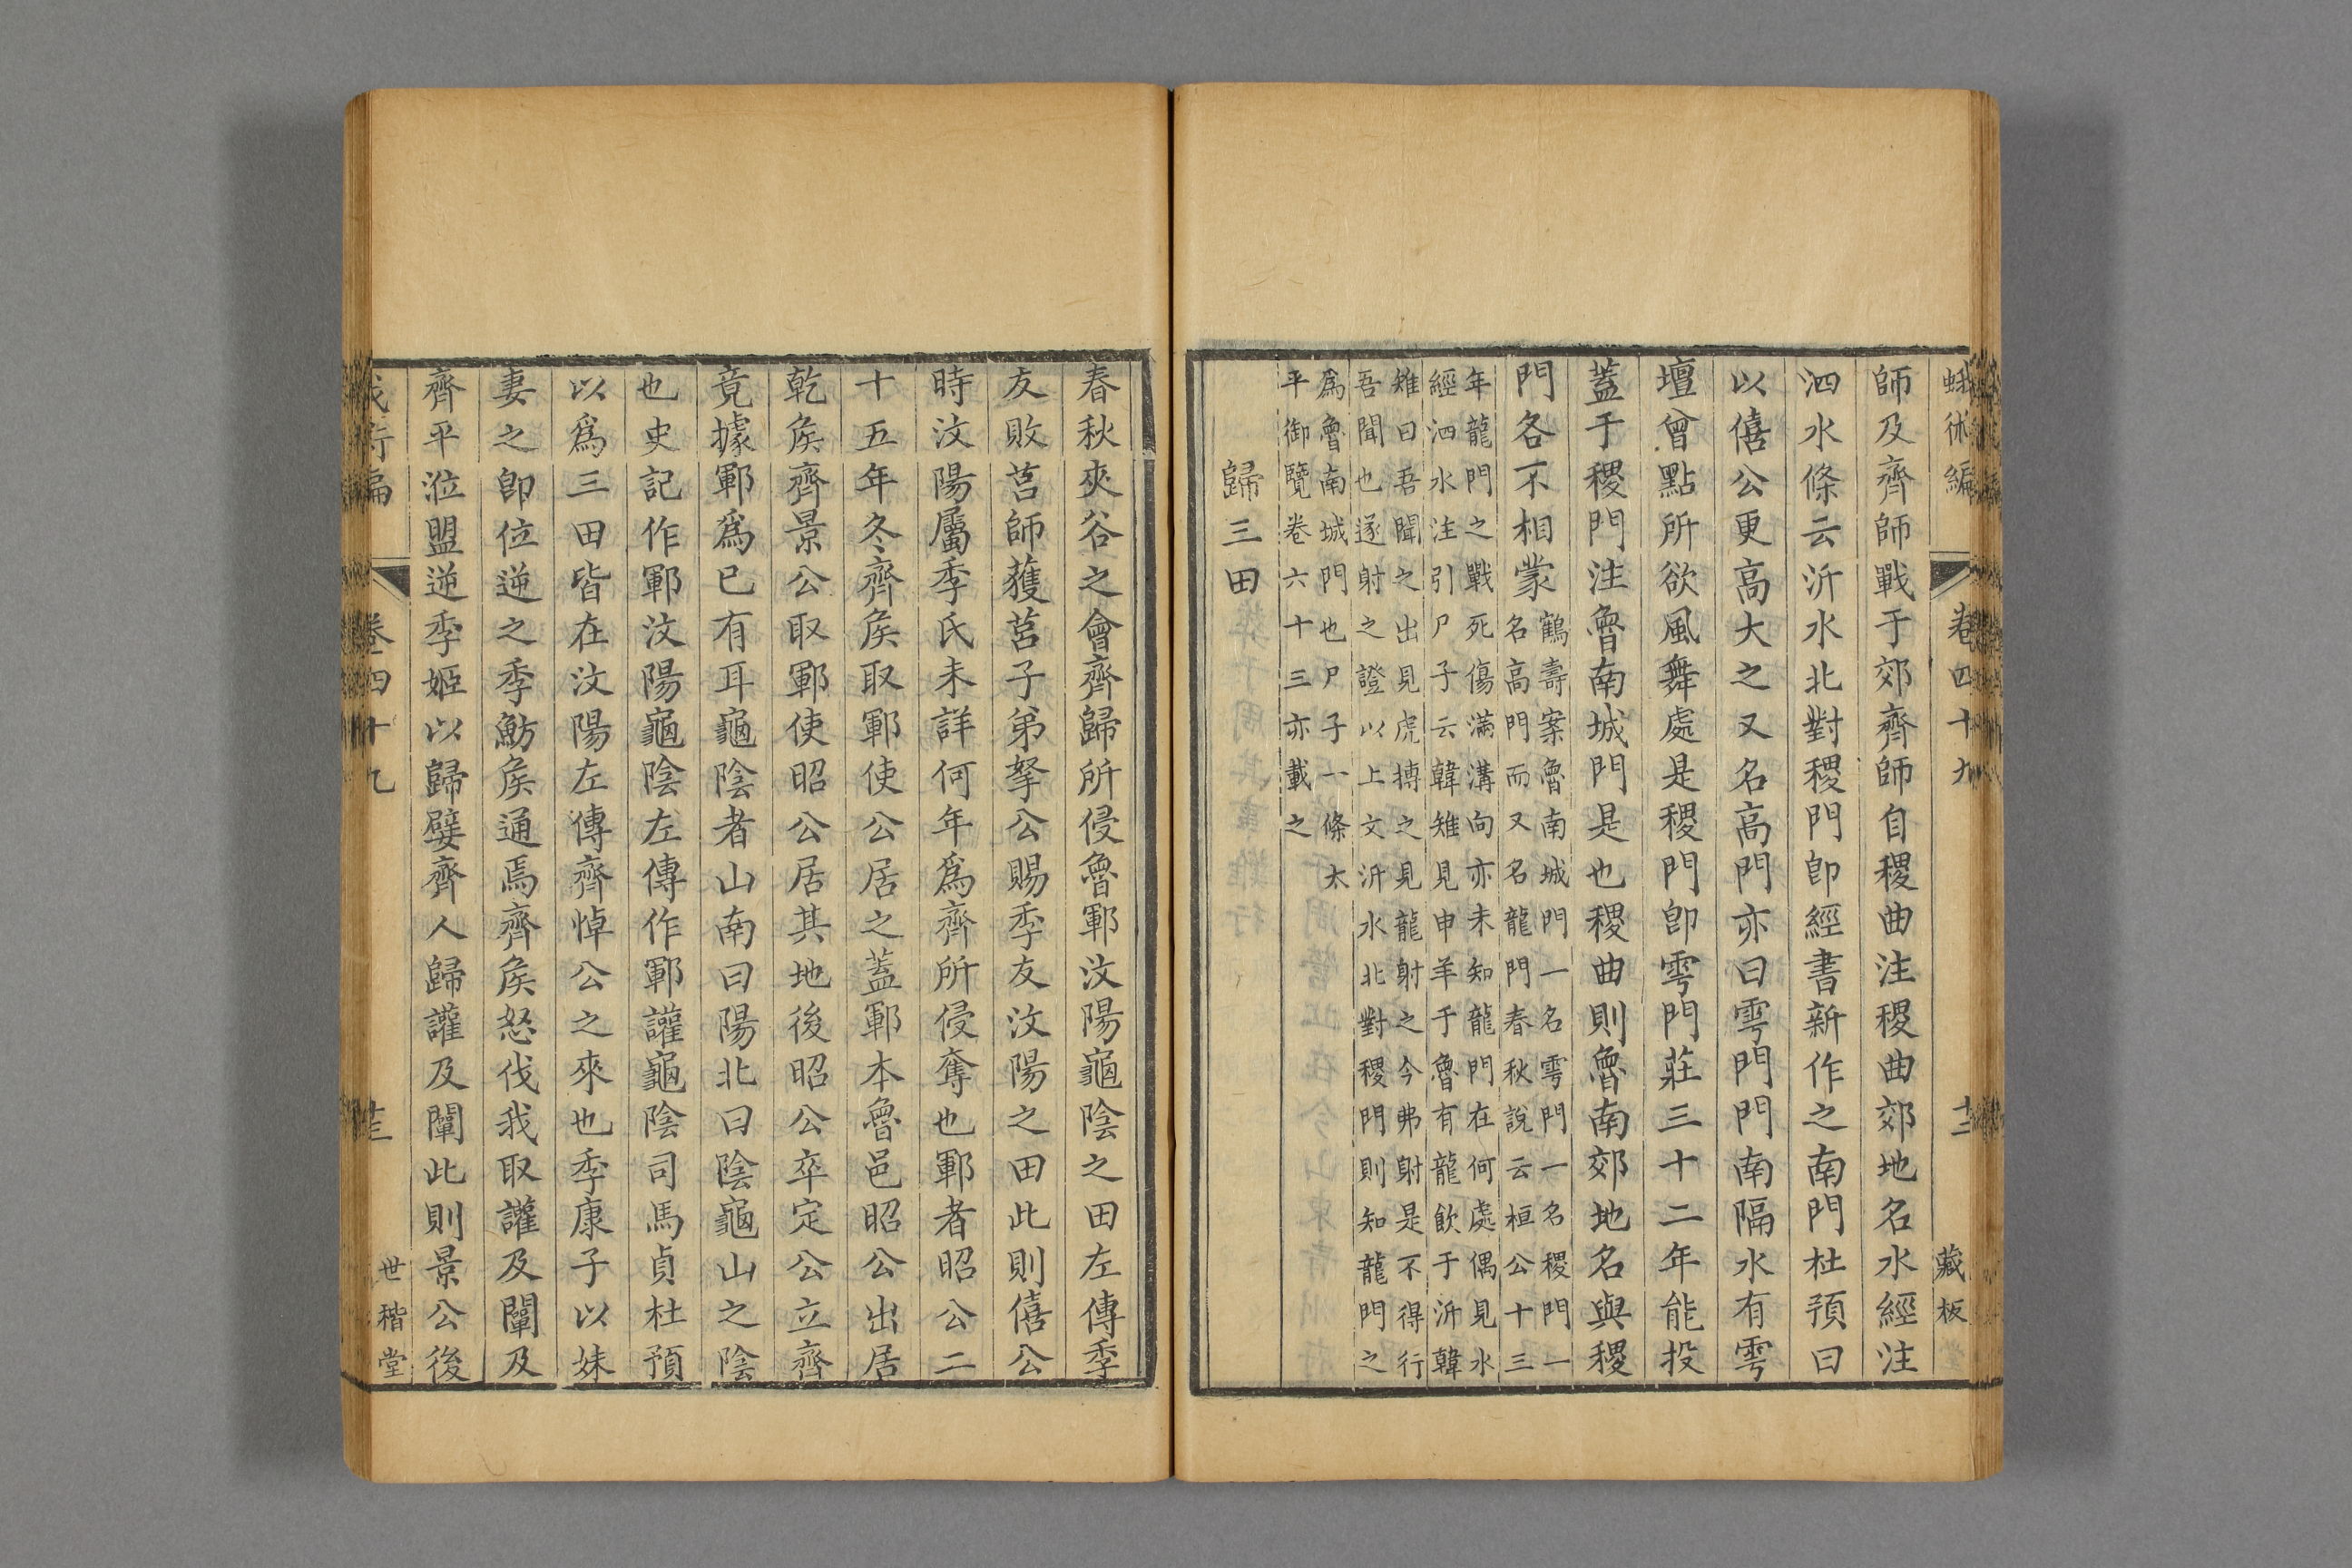 蛾術編 卷四十九 十二 藏板
師及齊師戰于郊齊師自稷曲注稷曲郊地名水經注
泗水條云沂水北對稷門卽經書新作之南門杜預曰
以僖公更高大之又名高門亦曰雩門門南隔水有雩
壇曾點所欲風舞處是稷門卽雩門莊三十二年能投
蓋于稷門注魯南城門是也稷曲則魯南郊地名與稷
門各不相蒙
鶴壽案魯南城門一名雩門一名稷門一
名高門而又名龍門春秋說云桓公十三
年龍門之戰死傷滿溝向亦未知龍門在何處偶見水
經泗水注引尸子云韓雉見申羊于魯有龍飲于沂韓
雉曰吾聞之出見虎搏之見龍射之今弗射是不得行
吾聞也遂射之證以上文沂水北對稷門則知龍門之
爲魯南城門也尸子一條太
平御覽卷六十三亦載之
歸三田
春秋夾谷之會齊歸所侵魯鄆汶陽龜陰之田左傳季
友敗莒師獲莒子弟拏公賜季友汶陽之田此則僖公
時汶陽屬季氏未詳何年爲齊所侵奪也鄆者昭公二
十五年冬齊侯取鄆使公居之蓋鄆本魯邑昭公出居
乾侯齊景公取鄆使昭公居其地後昭公卒定公立齊
竟據鄆爲已有耳龜陰者山南曰陽北曰陰龜山之陰
也史記作鄆汶陽龜陰左傳作鄆讙龜陰司馬貞杜預
以爲三田皆在汶陽左傳齊悼公之來也季康子以妹
妻之卽位逆之季魴侯通焉齊侯怒伐我取讙及闡及
齊平涖盟逆季姬以歸嬖齊人歸讙及闡此則景公後
卷四十九 十三 世楷堂